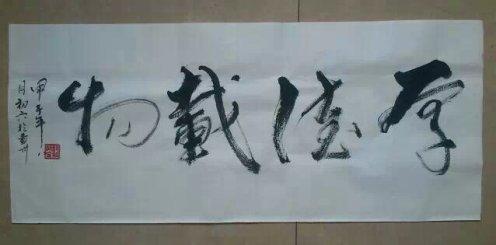 厚德載物
甲午年
月初六於貴州